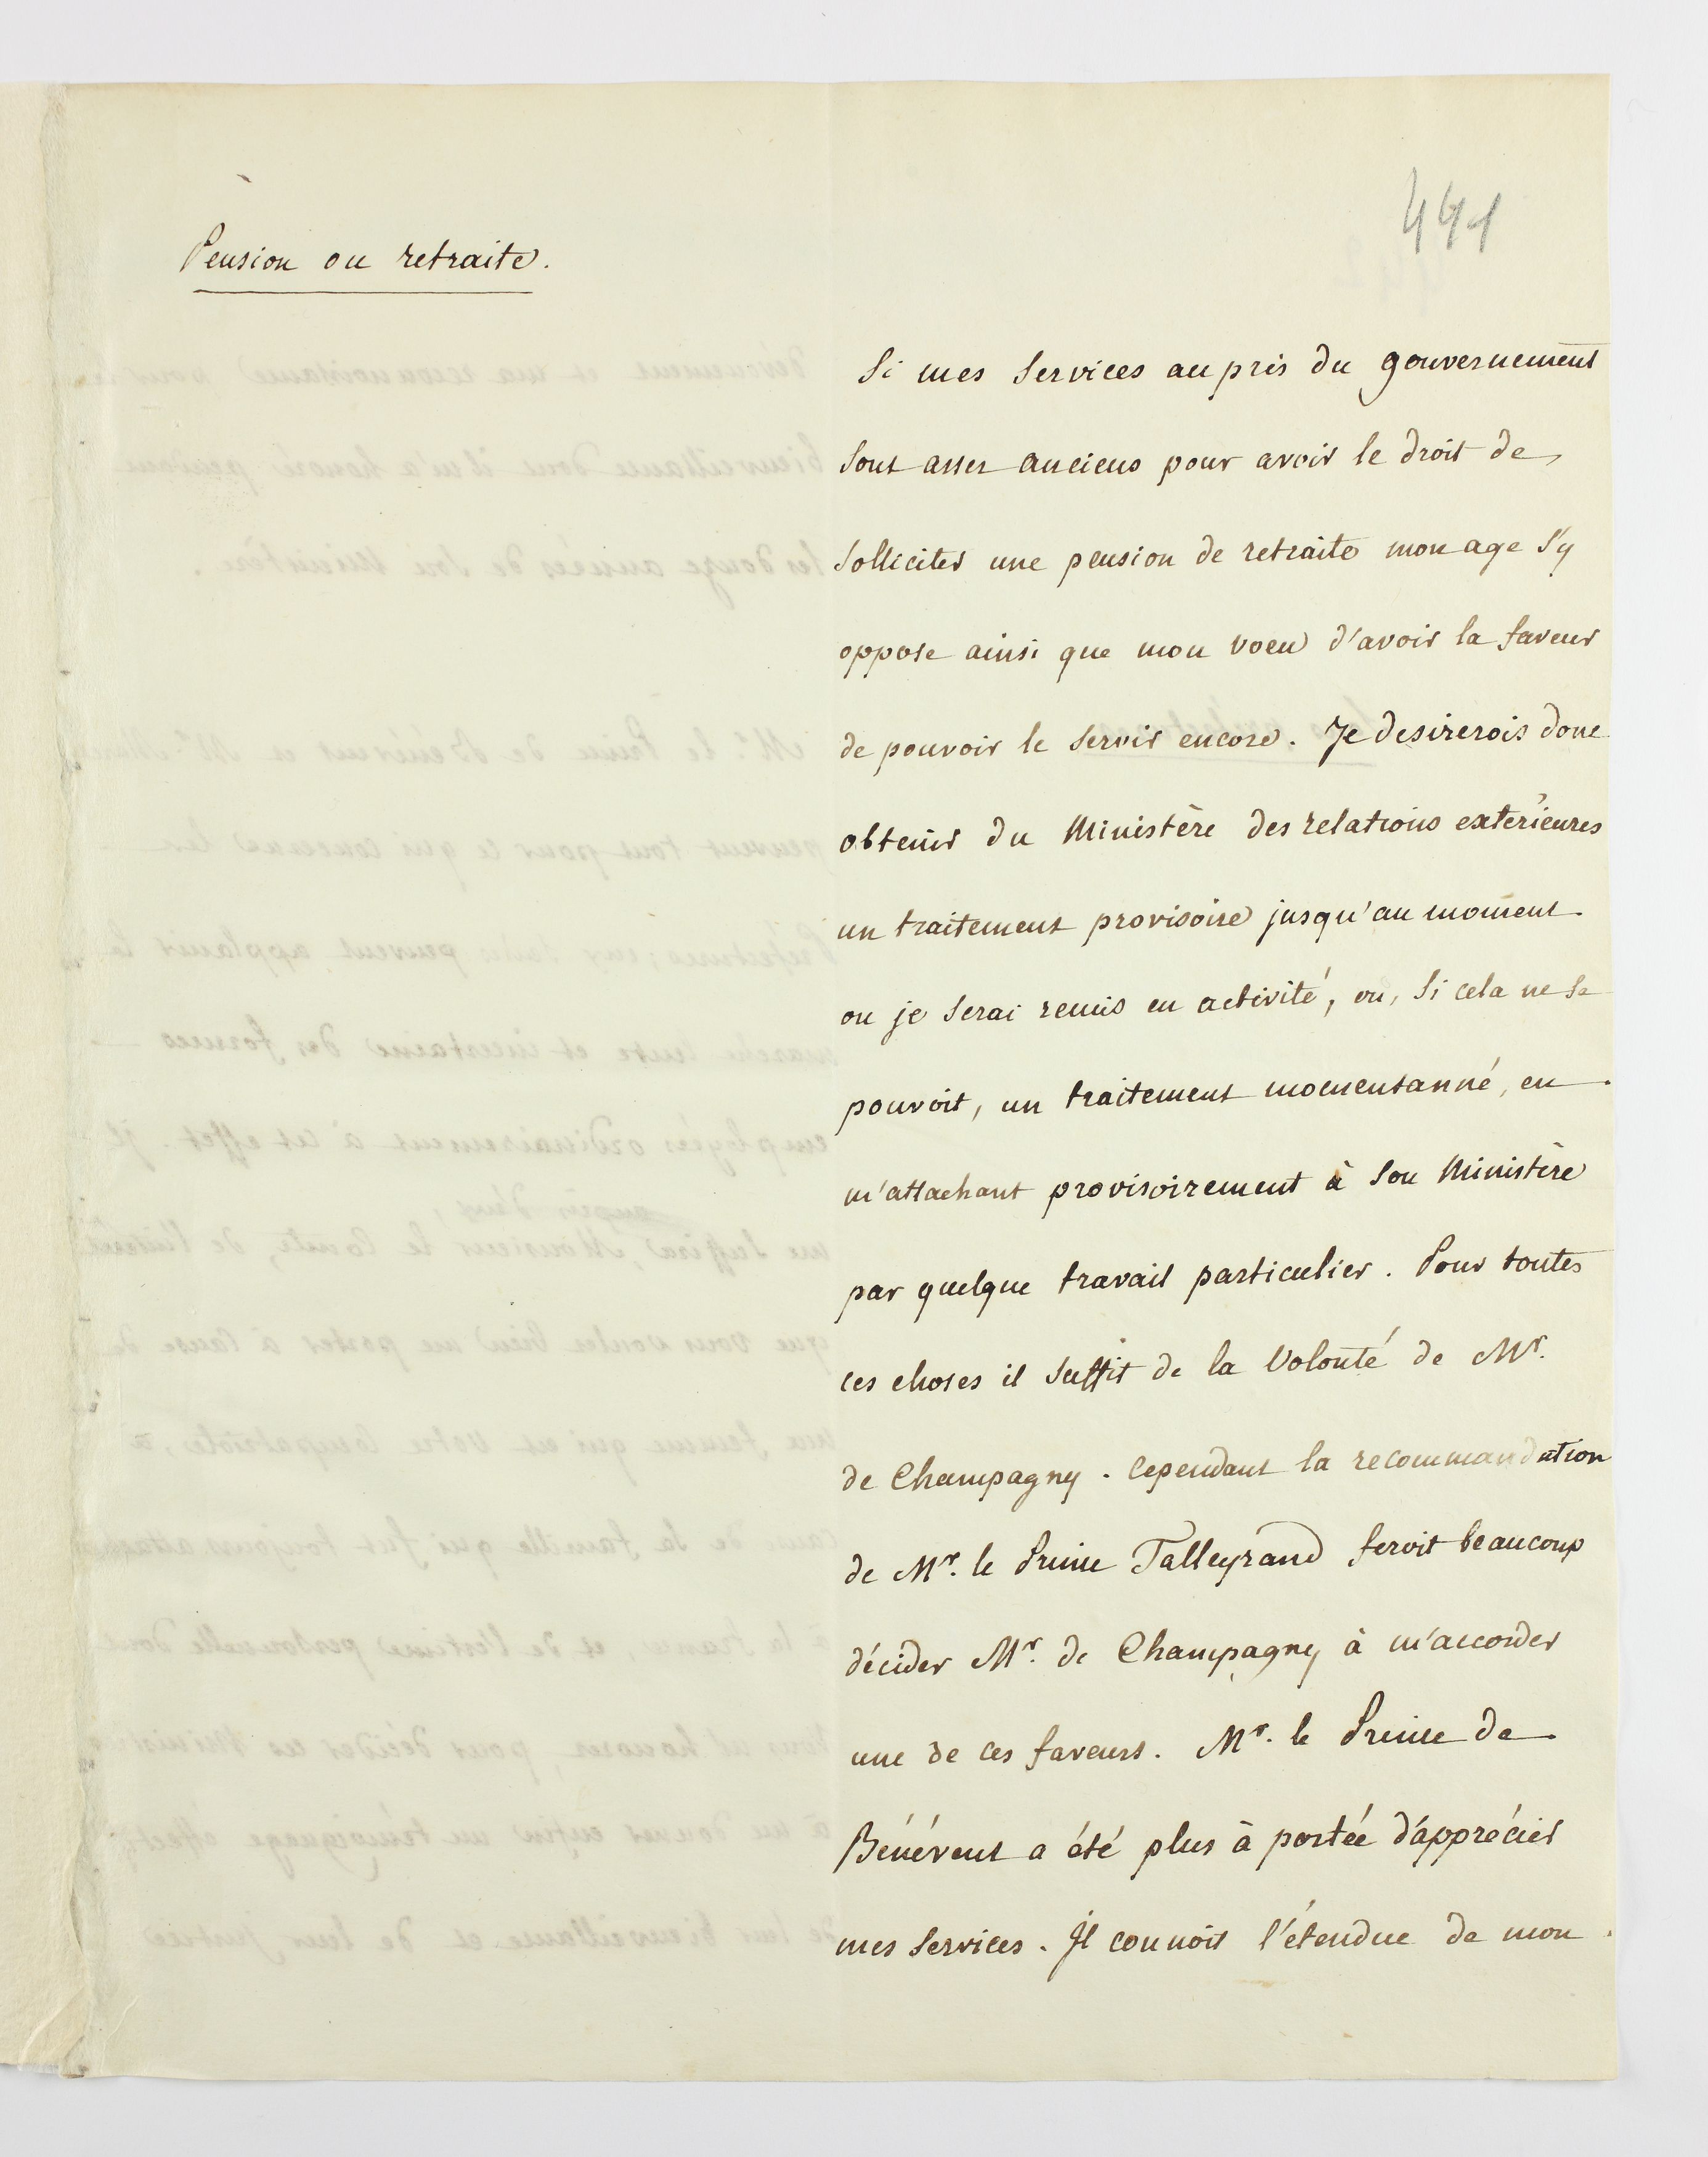 441
Pension ou retraite.
Si mes services au près du gouvernement
sont assez anciens pour avoir le droit de
solliciter une pension de retraite mon age s'y
oppose ainsi que mon voeu d'avoir la faveur
de pouvoir le servir encore. Je desirerois donc
obtenir du Ministère des relations extérieures
un traitement provisoire jusqu'au moment
ou je serai remis en activité, ou, si cela ne se
pouvoit, un traitement momentanné, en
m'attachant provisoirement à son Ministère
par quelque travail particulier. Pour toutes
ces choses il suffit de la volonté de Mr.
de Champagny. Cependant la recommandation
de Mr. le Prince Talleyrand feroit beaucoup
décider Mr. de Champagny à m'accorder
une de ces faveurs. Mr. le Prince de
Bénévent a été plus à portée d'apprécier
mes services. Il connoit l'étendue de mon